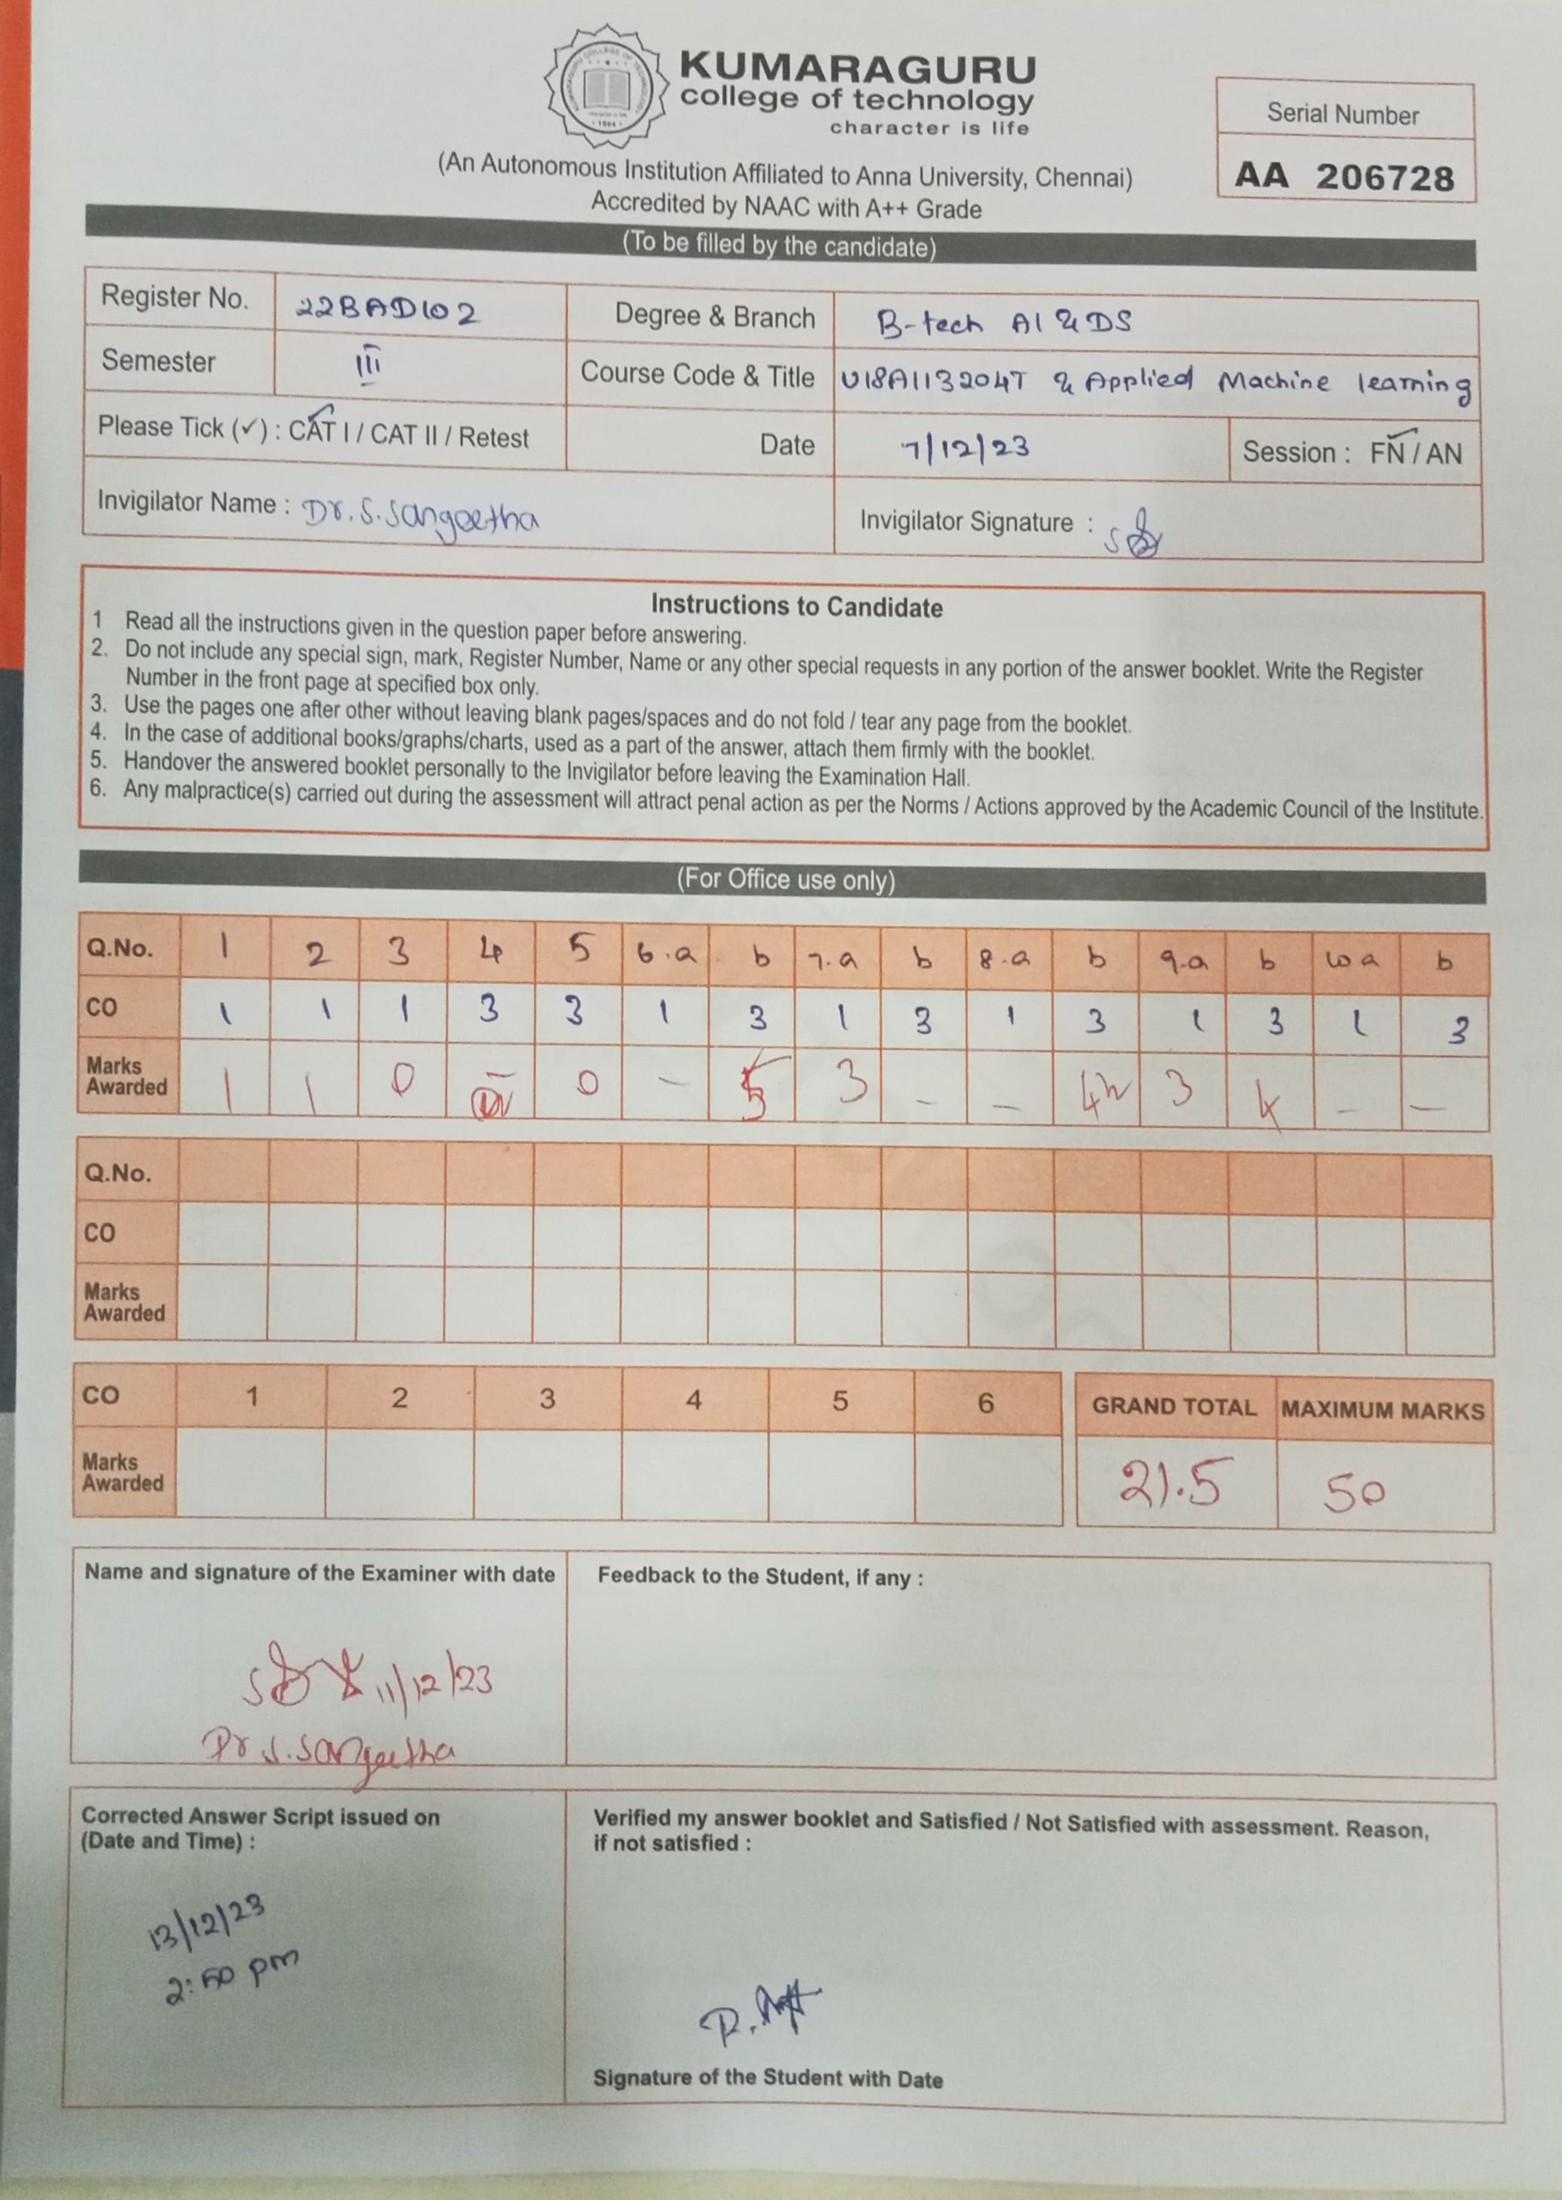 KUMARAGURU
college of technology
character is life
(An Autonomous Institution Affiliated to Anna University, Chennai)
Accredited by NAAC with A++ Grade
Serial Number
AA 206728
(To be filled by the candidate)
Register No. 22BAD102 Degree & Branch B-tech AI & DS
Semester III Course Code & Title U18AI13204T & Applied Machine learning
Please Tick (✓) : CAT I / CAT II / Retest Date 7/12/23 Session : FN / AN
Invigilator Name : Dr. S. Sangeetha Invigilator Signature :
Instructions to Candidate
1 Read all the instructions given in the question paper before answering.
2. Do not include any special sign, mark, Register Number, Name or any other special requests in any portion of the answer booklet. Write the Register
Number in the front page at specified box only.
3. Use the pages one after other without leaving blank pages/spaces and do not fold / tear any page from the booklet.
4. In the case of additional books/graphs/charts, used as a part of the answer, attach them firmly with the booklet.
5. Handover the answered booklet personally to the Invigilator before leaving the Examination Hall.
6. Any malpractice(s) carried out during the assessment will attract penal action as per the Norms / Actions approved by the Academic Council of the Institute.
(For Office use only)
Q.No. 1 2 3 4 5 6.a b 7.a b 8.a b 9.a b 10 a b
CO 1 1 1 3 3 1 3 1 3 1 3 1 3 1 3
Marks
Awarded 1 1 0 – 0 – 5 3 – – 4½ 3 4 – –
Q.No.
CO
Marks
Awarded
CO 1 2 3 4 5 6 GRAND TOTAL MAXIMUM MARKS
Marks
Awarded 21.5 50
Name and signature of the Examiner with date Feedback to the Student, if any :
11/12/23
Dr S. Sangeetha
Corrected Answer Script issued on
(Date and Time) :
Verified my answer booklet and Satisfied / Not Satisfied with assessment. Reason,
if not satisfied :
13/12/23
2:50 pm
Signature of the Student with Date